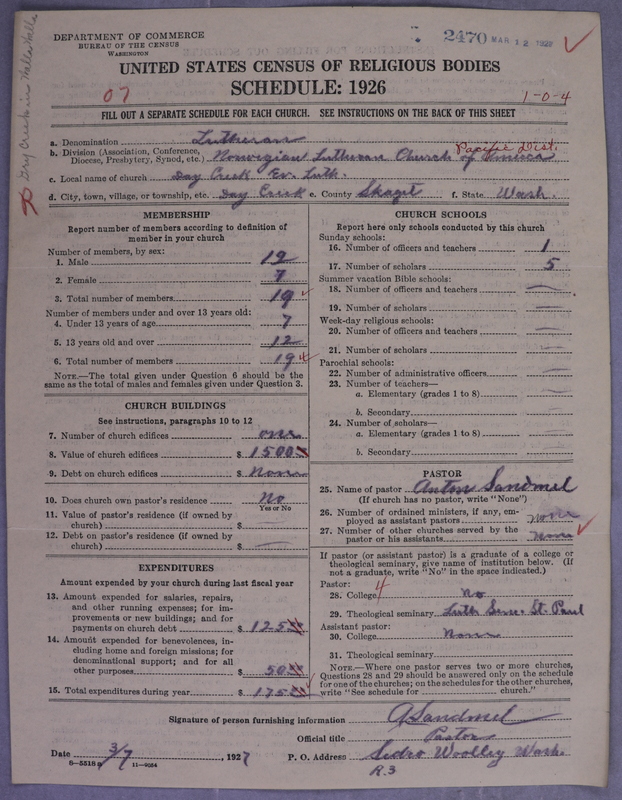 DEPARTMENT OF COMMERCE
BUREAU OF THE CENSUS
WASHINGTON
2470 MAR 12 1927
UNITED STATES CENSUS OF RELIGIOUS BODIES
SCHEDULE: 1926
07
1-0-4
FILL OUT A SEPARATE SCHEDULE FOR EACH CHURCH. SEE INSTRUCTIONS ON THE BACK OF THIS SHEET
a. Denomination Lutheran
b. Division (Association, Conference, Diocese, Presbytery, Synod, etc.) Norwegian Lutheran Church of America Pacific Dist.
c. Local name of church Day Creek Ev. Luth.
d. City, town, village, or township, etc. Day Creek e. County Skagit f. State Wash.
MEMBERSHIP
Report number of members according to definition of
member in your church
Number of members, by sex:
1. Male 12
2. Female 7
3. Total number of members 19
Number of members under and over 13 years old:
4. Under 13 years of age 7
5. 13 years old and over 12
6. Total number of members 19
NOTE.—The total given under Question 6 should be
same as the total of males and females given under Question 3.
CHURCH BUILDINGS
See instructions, paragraphs 10 to 12
7. Number of church edifices one
8. Value of church edifices $ 1500
9. Debt on church edifices $ None
10. Does church own pastor's residence No
Yes or No
11. Value of pastor's residence (if owned by
church) $ —
12. Debt on pastor's residence (if owned by
church) $ —
EXPENDITURES
Amount expended by your church during last fiscal year
13. Amount expended for salaries, repairs,
and other running expenses; for im-
provements or new buildings; and for
payments on church debt $ 125
14. Amount expended for benevolences, in-
cluding home and foreign missions; for
denominational support; and for all
other purposes $ 50
15. Total expenditures during year $ 175
CHURCH SCHOOLS
Report here only schools conducted by this church
Sunday schools:
16. Number of officers and teachers 1
17. Number of scholars 5
Summer vacation Bible schools:
18. Number of officers and teachers —
19. Number of scholars —
Week-day religious schools:
20. Number of officers and teachers —
21. Number of scholars —
Parochial schools:
22. Number of administrative officers —
23. Number of teachers—
a. Elementary (grades 1 to 8) —
b. Secondary —
24. Number of scholars—
a. Elementary (grades 1 to 8) —
b. Secondary —
PASTOR
25. Name of pastor Anton Sandmel
(If church has no pastor, write "None")
26. Number of ordained ministers, if any, em-
ployed as assistant pastors none
27. Number of other churches served by the
pastor or his assistants None
If pastor (or assistant pastor) is a graduate of a college or
theological seminary, give name of institution below. (If
not a graduate, write "No" in the space indicated.)
Pastor:
28. College 4 No
29. Theological seminary Luth Sem. St. Paul
Assistant pastor:
30. College None
31. Theological seminary
NOTE.—Where one pastor serves two or more churches,
Questions 28 and 29 should be answered only on the schedule
for one of the churches; on the schedules for the other churches,
write "See schedule for church."
Signature of person furnishing information A Sandmel
Official title Pastor
Date 3/7, 1927 P. O. Address Sedro Woolley Wash.
R.3
8-5518 a 11-9054